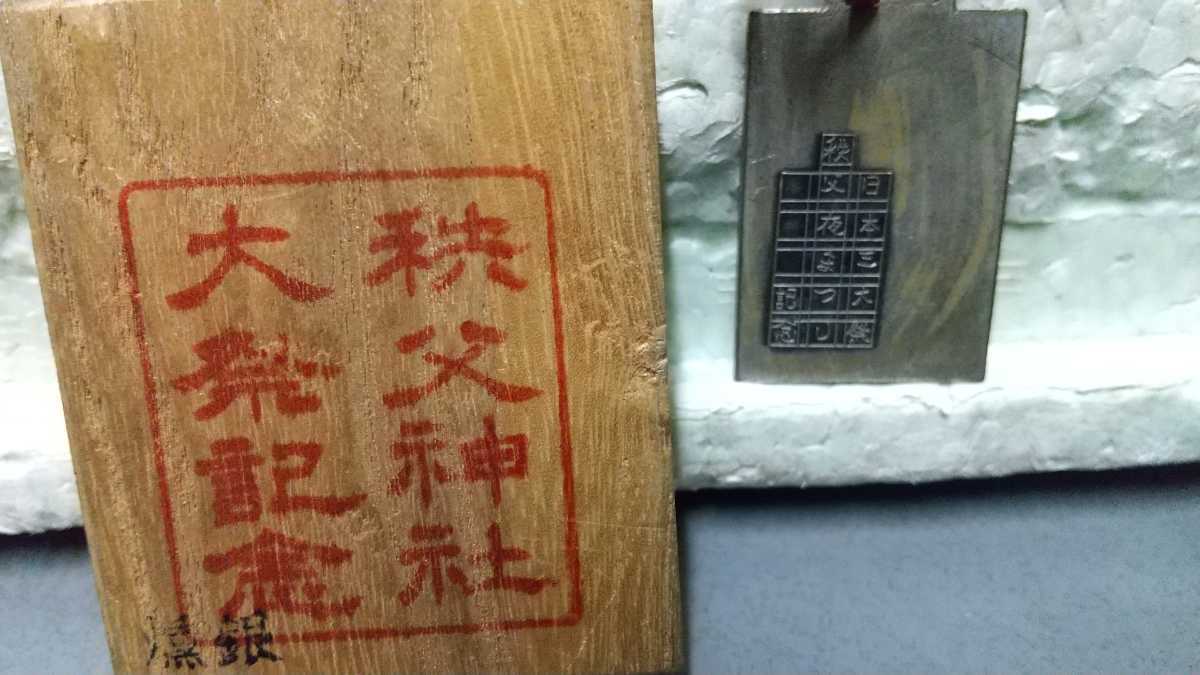 秩父神社
大祭記念
燻銀
日本三大祭
秩父夜まつり
記念